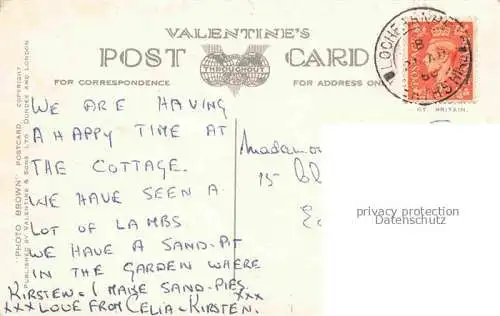 VALENTINE'S
POST CARD
FOR CORRESPONDENCE
FOR ADDRESS ON
GT. BRITAIN.
"PHOTO BROWN" POSTCARD COPYRIGHT
PUBLISHED BY VALENTINE & SONS LTD. DUNDEE AND LONDON
WE ARE HAVING
A HAPPY TIME AT
THE COTTAGE.
WE HAVE SEEN A
LOT OF LAMBS
WE HAVE A SAND-PIT
IN THE GARDEN WHERE
KIRSTEN & I MAKE SAND-PIES.
xxx LOVE FROM CELIA & KIRSTEN. xxx
Madamo
15
privacy protection
Datenschutz